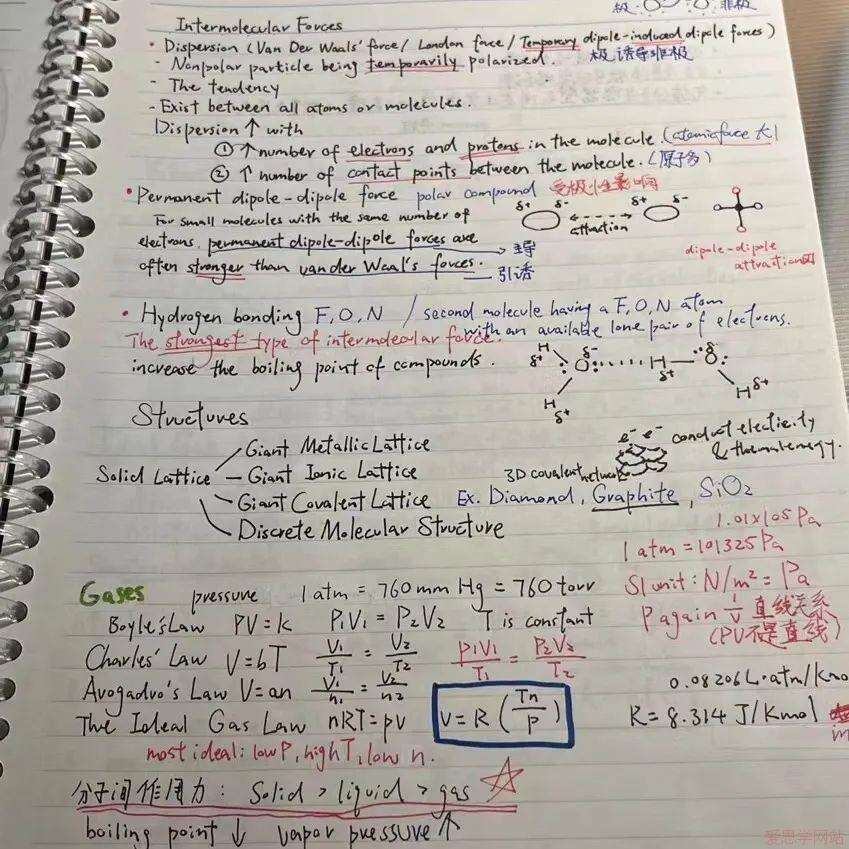 极: 非极
Intermolecular Forces
• Dispersion (Van Der Waals' force / London force / Temporary dipole-induced dipole forces)
- Nonpolar particle being temporarily polarized. 极诱导非极
- The tendency
- Exist between all atoms or molecules.
Dispersion ↑ with
① ↑ number of electrons and protons in the molecule. (atomic force 大)
② ↑ number of contact points between the molecule. (原子多)
• Permanent dipole-dipole force polar compound 受极性影响
For small molecules with the same number of
electrons, permanent dipole-dipole forces are → 主导
often stronger than van der Waal's forces. — 引诱
δ+ δ- δ+ δ-
attraction
dipole-dipole
attraction
• Hydrogen bonding F, O, N / second molecule having a F, O, N atom
with an available lone pair of electrons.
The strongest type of intermolecular force.
increase the boiling point of compounds.
δ+ H O δ- H δ+ O δ-
H δ+ H δ+
Structures
Solid Lattice
Giant Metallic Lattice
Giant Ionic Lattice
Giant Covalent Lattice Ex. Diamond, Graphite, SiO2
Discrete Molecular Structure
3D covalent network
e- e- conduct electricity
& thermal energy.
1.01x105 Pa
1 atm = 101325 Pa
Gases pressure 1 atm = 760 mm Hg = 760 torr SI unit: N/m² = Pa
Boyle's Law PV=k P1V1 = P2V2 T is constant
P again 1/V 直线关系
(PV不是直线)
Charles' Law V=bT V1/T1 = V2/T2 P1V1/T1 = P2V2/T2
Avogadro's Law V=an V1/n1 = V2/n2
The Ideal Gas Law nRT=pv V=R(Tn/P)
0.08206 L·atm/Kmo
R=8.314 J/Kmol
most ideal: low P, high T, low n.
分子间作用力: Solid > liquid > gas
boiling point ↓ vapor pressure ↑
爱思学网站